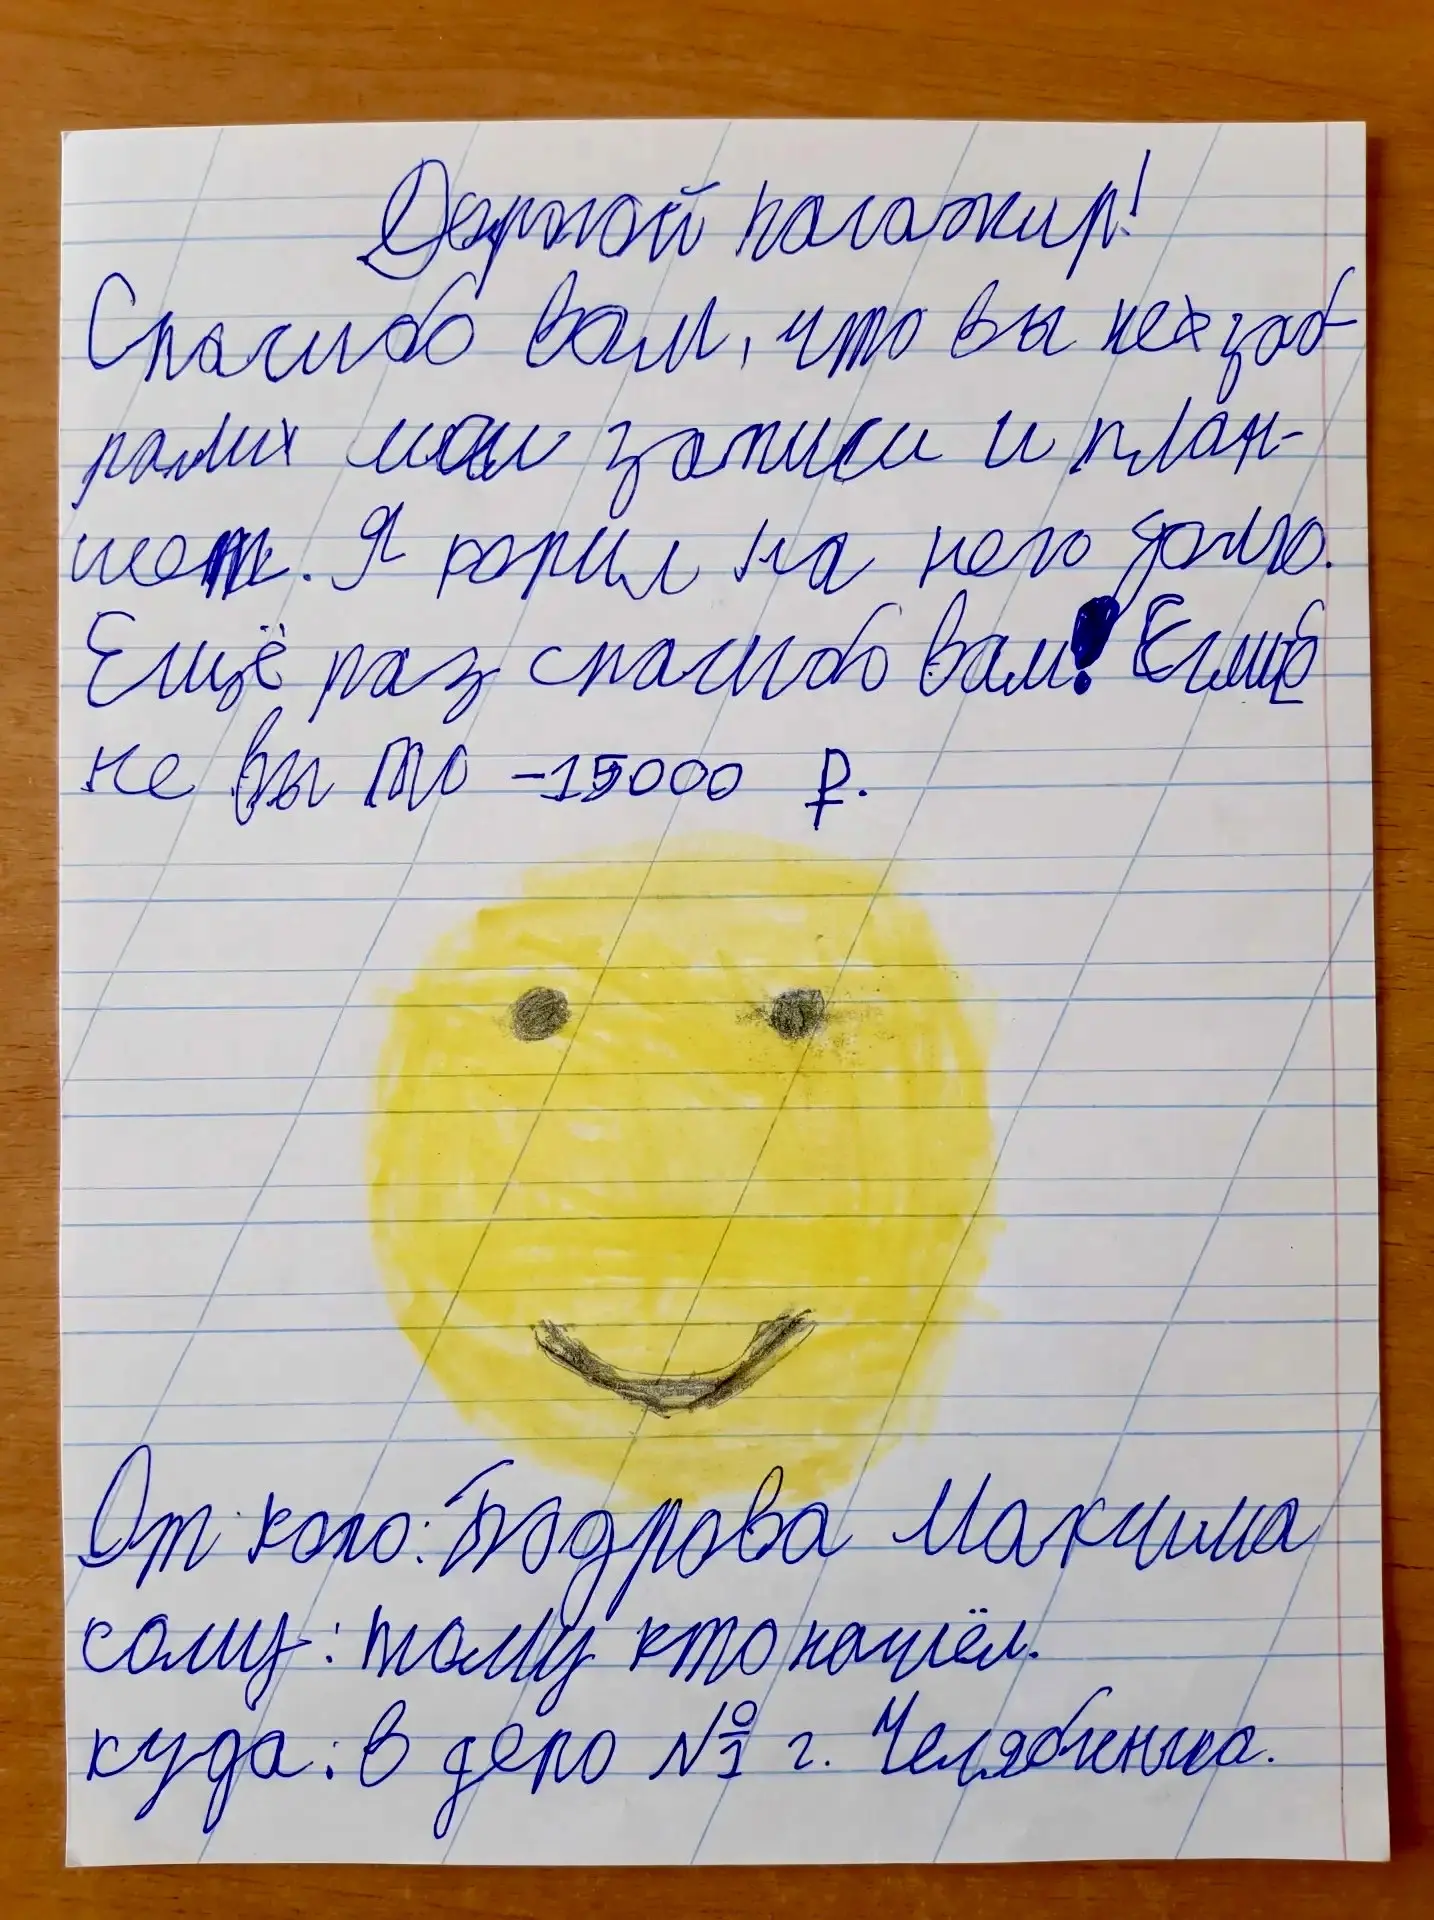 Дорогой пасажир!
Спасибо вам, что вы не заб-
рали мои записи и план-
шет. Я копил на него долго.
Ещё раз спасибо вам! Еслиб
не вы то -15000 ₽.
От кого: Бодрова Максима
кому: тому кто нашёл.
куда: в депо №1 г. Челябенска.